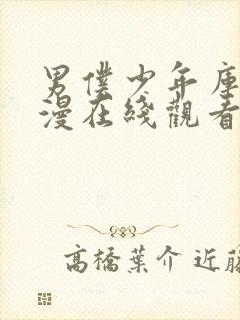 男僕少年庫
漫在綫觀看
高橋葉介 近藤